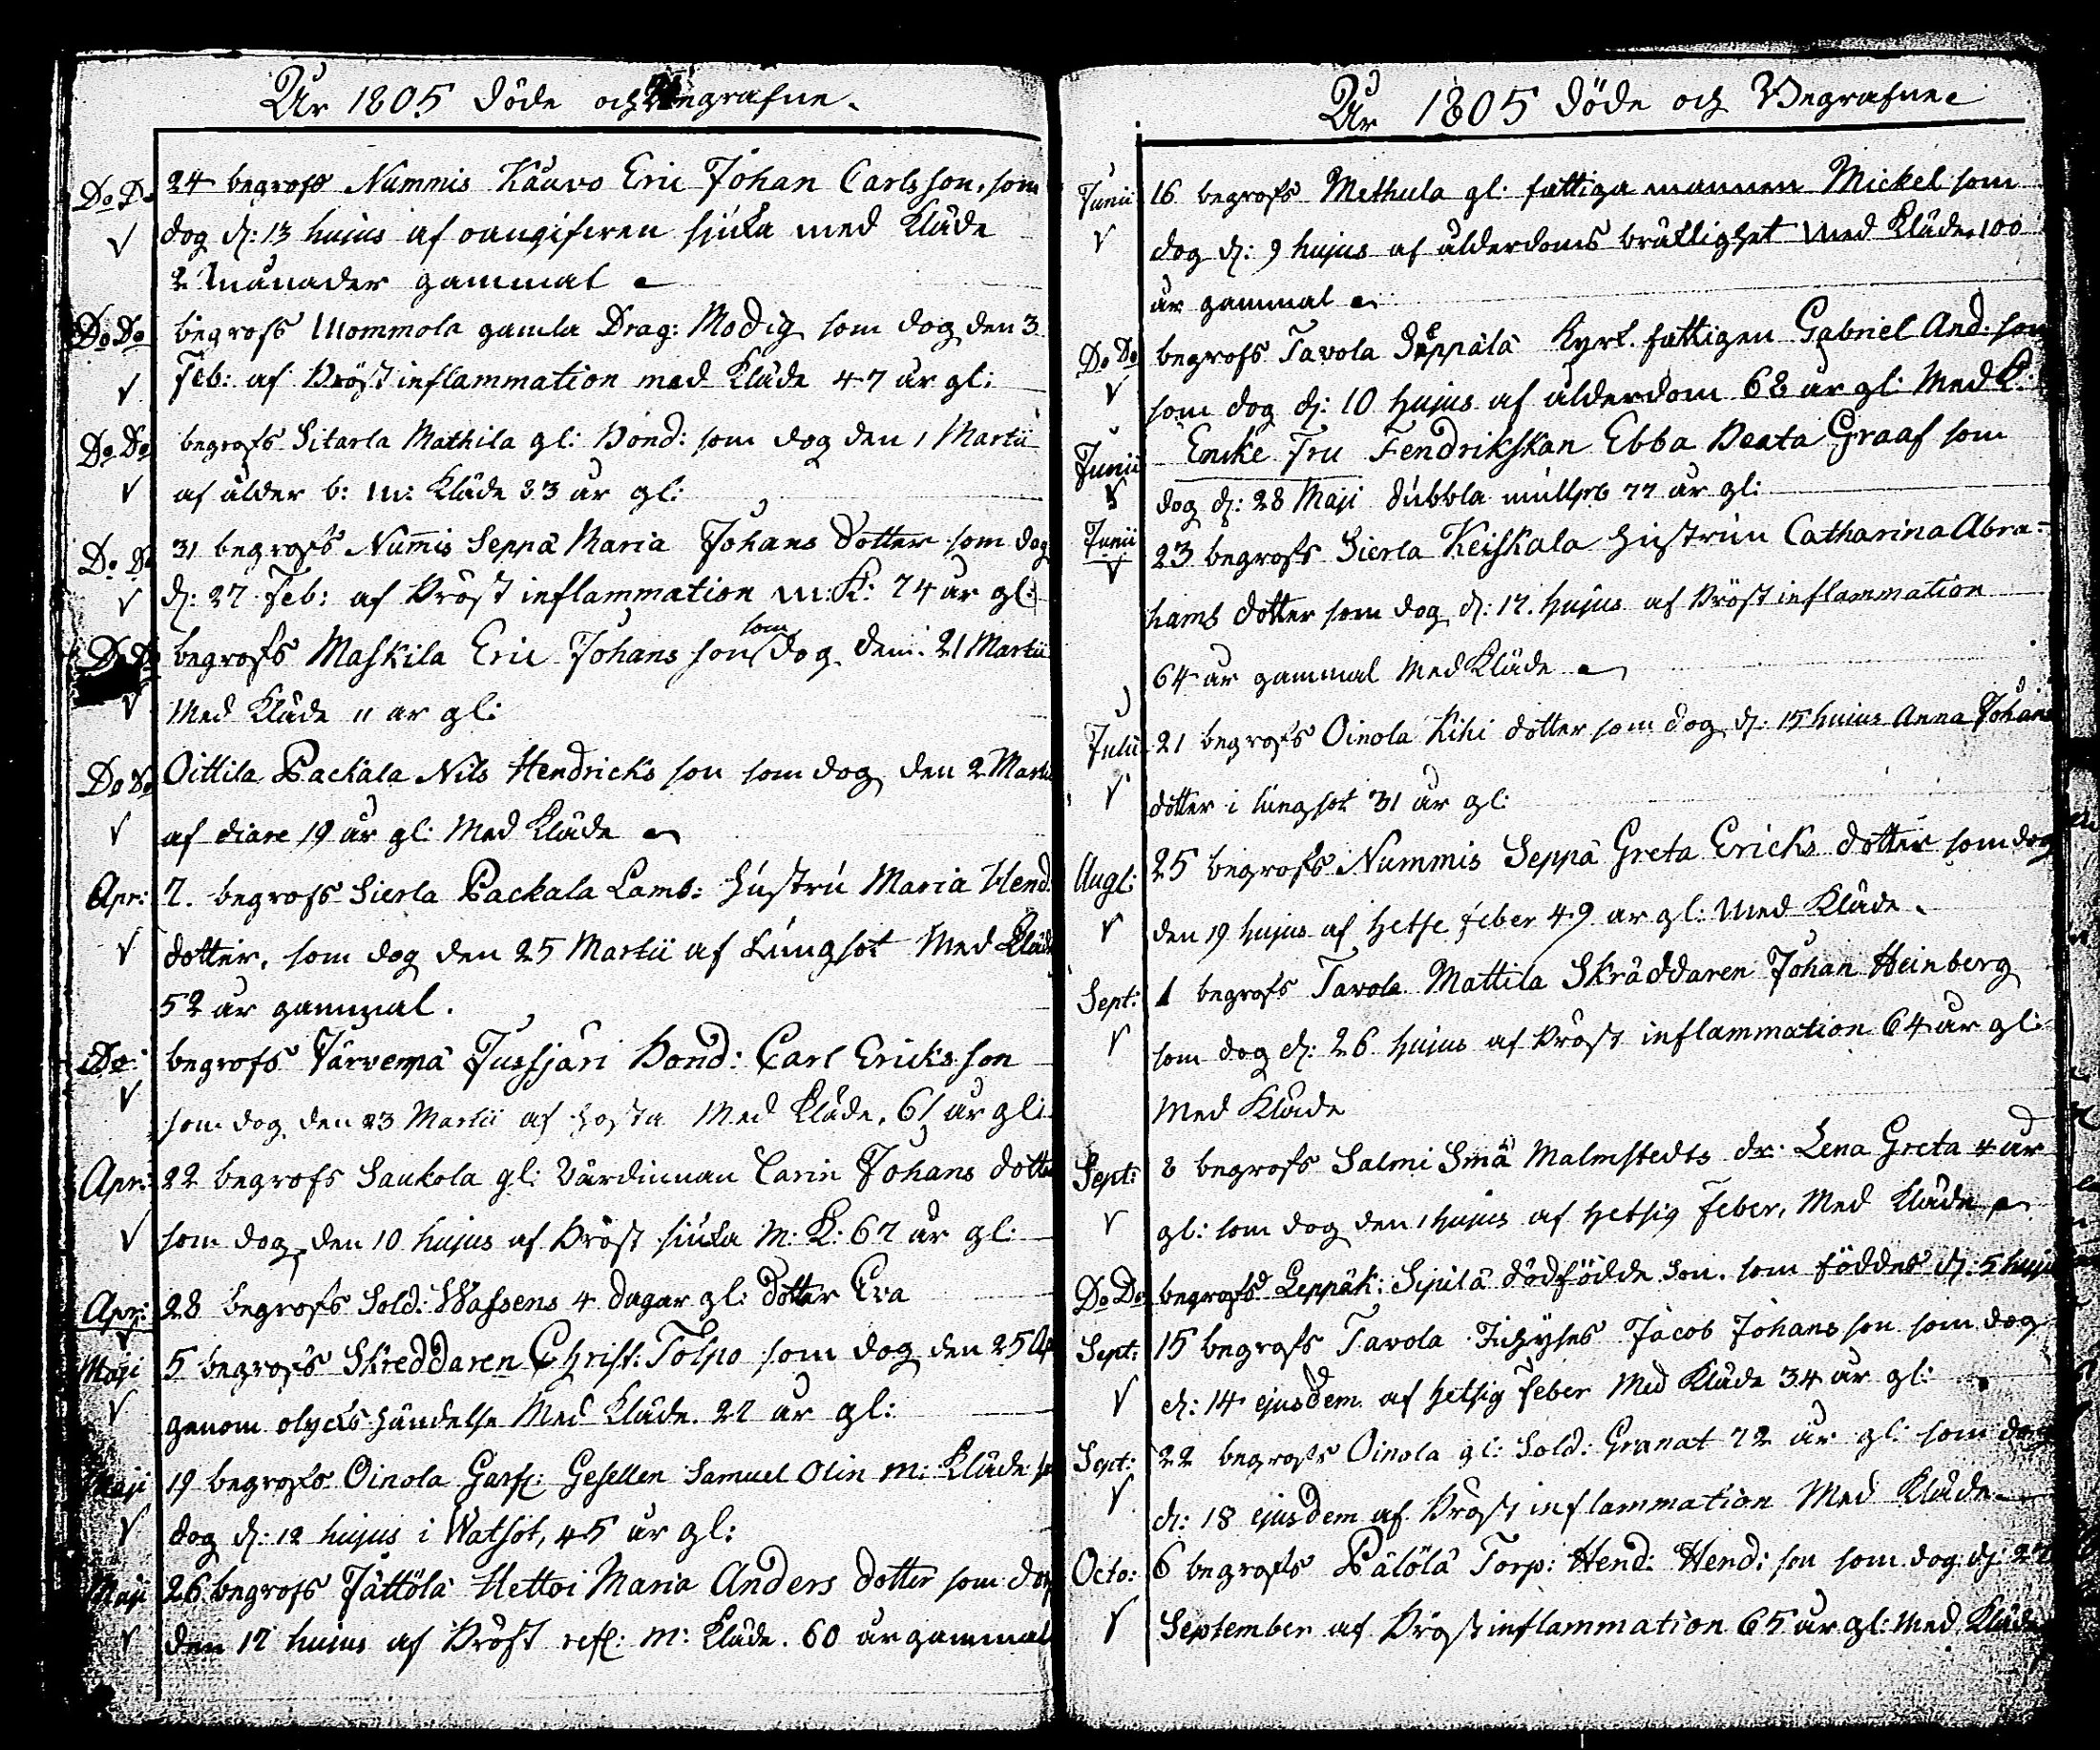 År 1805 döde och Begrafne.
Do Do 24 begrofs Nummis Kauvo Eric Johan Carlsson, som
dog d: 13 hujus af oangifven sjuka med Kläde
2 Månader gammal
Do Do begrofs Mommola gamla Drag: Modig som dog den 3
Feb: af Bröst inflammation med Kläde 47 år gl:
Do Do begrofs Sitarla Mathila gl: Bond: som dog den 1 Martii
af ålder b: M: Kläde 83 år gl:
Do Do 31 begrofs Numis Seppä Maria Johans Dotter som dog
d: 27 Feb: af Bröst inflammation M: K: 74 år gl:
Do Do begrofs Maskila Eric Johans son som dog den 21 Martii
Med Kläde 11 år gl:
Do Do Oittila Packala Nils Hendricks son som dog den 2 Martii
af diare 19 år gl: Med Kläde
Apr: 7. begrofs Sierla Packala Lamb: hustru Maria Hend:
dotter, som dog den 25 Martii af Lungsot Med Kläde
52 år gammal.
Do: begrofs Järvenpä Jussjäri Bond: Carl Ericks son
som dog den 23 Martii af hosta Med Kläde, 61 år gl:
Apr: 22 begrofs Saukola gl: Värdinnan Carin Johans dotter
som dog den 10 hujus af Bröst sjuka M: K: 67 år gl:
Apr: 28 begrofs Sold: Wassens 4 dagar gl: dotter Eva
Maji 5 begrofs Skreddaren Christ: Tolpo som dog den 25 Ap
genom olycks händelse Med Kläde. 27 år gl:
Maji 19 begrofs Oinola Garf: Gesellen Samuel Olin M: Kläde som
dog d: 12 hujus i Watsot, 45 år gl:
Maji 26 begrofs Jättölä Hettoi Maria Anders dotter som dog
den 17 hujus af Bröst M: Kläde. 60 år gammal
År 1805 döde och Begrafne
Junii 16 begrofs Methula gl: fattiga mannen Mickel som
dog d: 9 hujus af ålderdoms bräcklighet Med Kläde. 100
år gammal
Do Do begrofs Tavola Seppälä Kyrk. fattigen Gabriel And: son
som dog d: 10 hujus af ålderdom 68 år gl: Med K:
Junii Encke Fru Fendrikskan Ebba Beata Graaf som
dog d: 28 Maji dubbla mullpb 77 år gl:
Junii 23 begrofs Sierla Keiskala hustrun Catharina Abra-
hams dotter som dog d: 17. hujus af Bröst inflammation
64 år gammal Med Kläde
Julii 21 begrofs Oinola Kihi dotter som dog d: 15 hujus Anna Johans
dotter i lungsot 31 år gl:
Augl: 25 begrofs Nummis Seppä Greta Ericks dotter som dog
den 19 hujus af hetse feber 49 år gl: Med Kläde.
Sept: 1 begrofs Tavola Mattila Skräddaren Johan Heinberg
som dog d: 26 hujus af Bröst inflammation 64 år gl:
Med Kläde
Sept: 8 begrofs Salmi Smä Malmstedts dr. Lena Greta 4 år
gl: som dog den 1 hujus af hetsig feber, Med Kläde
Do Do begrofs Leppäk: Sipilä dödfödde Son. som föddes d: 5 huju
Sept: 15 begrofs Tavola Jacob Johans son som dog
d: 14 ejusdem af hetsig feber Med Kläde 34 år gl:
Sept: 22 begrofs Oinola gl: Sold: Granat 72 år gl: som dog
d: 18 ejusdem af Bröst inflammation Med Kläde
Octo: 6 begrofs Pälölä Torp: Hend: Hend: son som dog d: 27
September af Bröst inflammation 65 år gl: Med Kläde